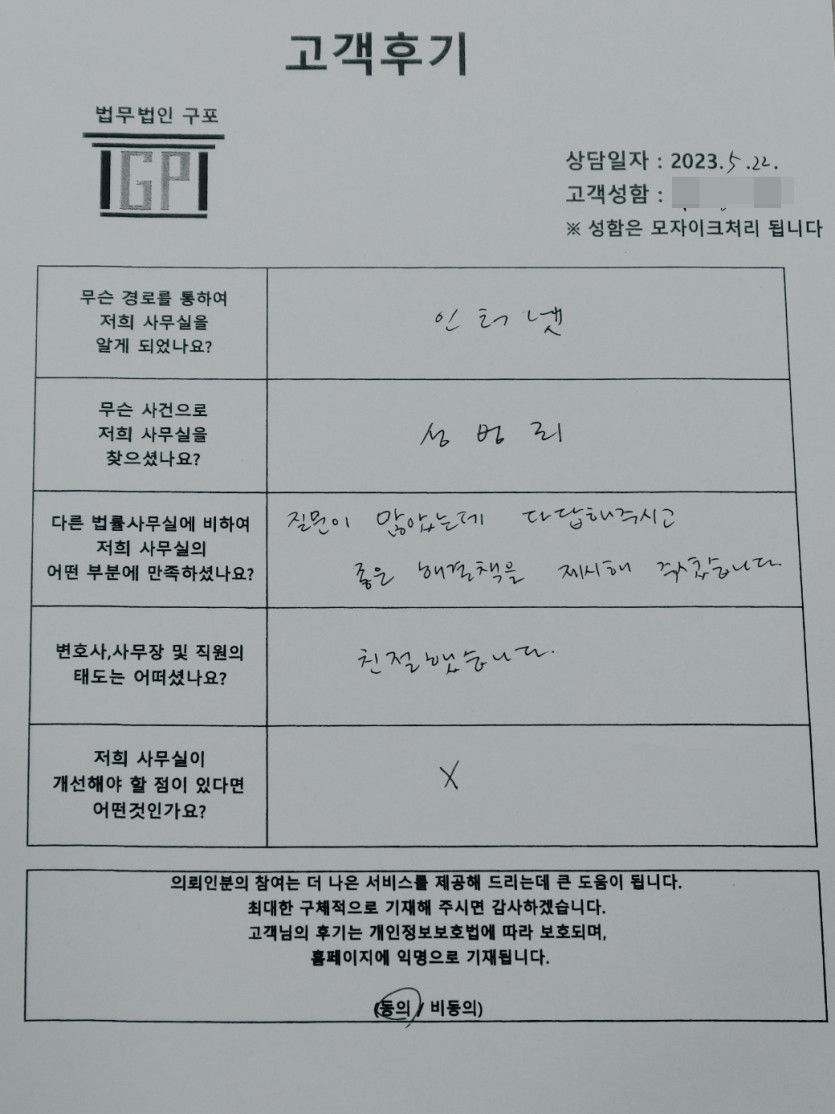 고객후기
법무법인 구포
GP
상담일자 : 2023.5.22.
고객성함 :
※ 성함은 모자이크처리 됩니다
무슨 경로를 통하여
저희 사무실을
알게 되었나요?
인터넷
무슨 사건으로
저희 사무실을
찾으셨나요?
성범죄
다른 법률사무실에 비하여
저희 사무실의
어떤 부분에 만족하셨나요?
질문이 많았는데 다 답해주시고
좋은 해결책을 제시해 주셨습니다.
변호사,사무장 및 직원의
태도는 어떠셨나요?
친절했습니다.
저희 사무실이
개선해야 할 점이 있다면
어떤것인가요?
X
의뢰인분의 참여는 더 나은 서비스를 제공해 드리는데 큰 도움이 됩니다.
최대한 구체적으로 기재해 주시면 감사하겠습니다.
고객님의 후기는 개인정보보호법에 따라 보호되며,
홈페이지에 익명으로 기재됩니다.
(동의 / 비동의)